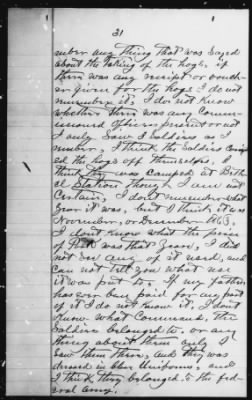 31
mber any thing that was sayed
about the taking of the hogs, if
there was any receipt or vouch-
er given for the hogs I do not
remember it, I do not know
whether there was any Comm-
issioned Officer present or not
I only Saw Soldiers as I
member, I think the Soldiers carri-
ed the hogs off themselves, I
think they was camped at Beth-
el Station though I am not
certain, I don't remember what
year it was, but I think it was
November, or December 1863,
I dont know what the price
of Pork was that year, I did
not see any of it used, and
can not tell you what use
it was put to. If my father
has ever been paid for any part
of it I do not know it, I don't
know what Command, the
Soldiers belonged to, or any
thing about them only I
Saw them there, and they was
dressed in blue Uniforms, and
I think they belonged to the fed-
eral army.